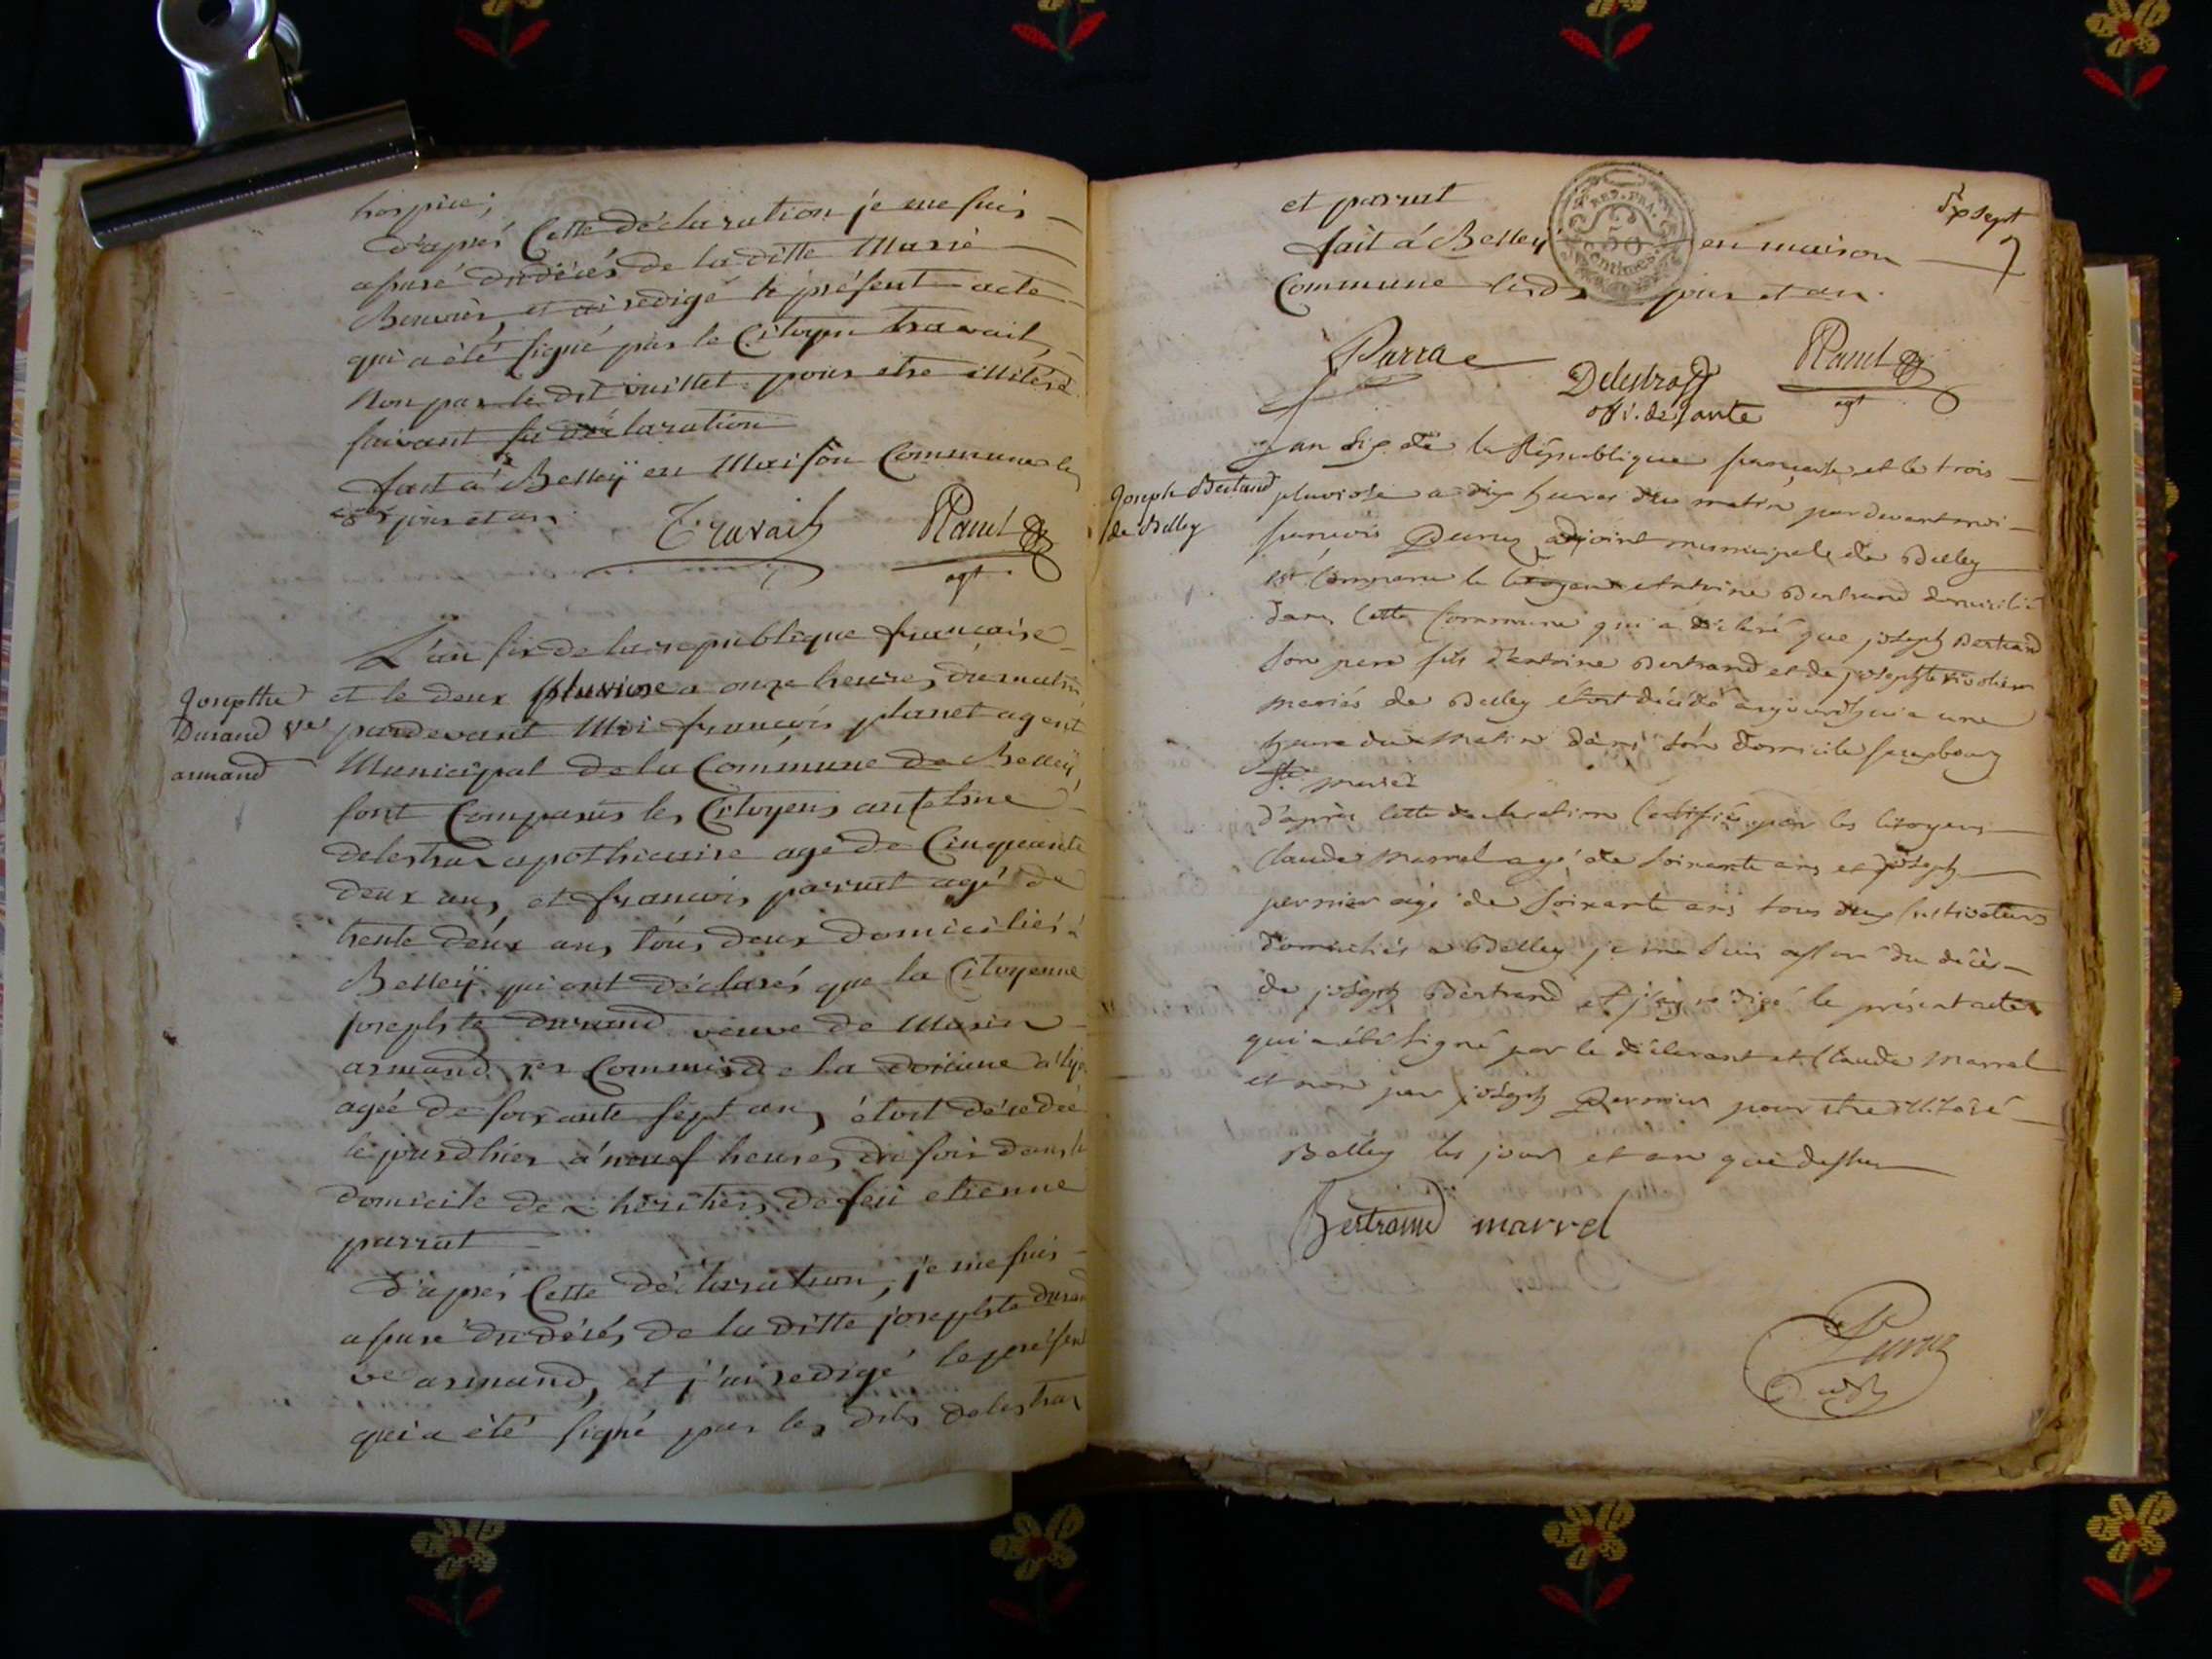 hospice;
D'aprés Cette déclaration je me suis
assuré du décés de la ditte Marie
Bouvier, et ai redigé le présent acte
qui a été signé par le Citoyen travail,
Non par le dit vuillet pour etre illitéré
suivant sa déclaration
fait à Belleÿ en Maison Commune les
jour et an
Travail Planet
agt
L'an six de la republique française
Josepthe
Durand ve
armand
et le deux pluviose a onze heures du matin
pardevant Moi françois planet agent
Municipal de la Commune de Belleÿ,
sont Comparus les Citoyens antelme
delestraz apothicaire agé de Cinquante
deux ans, et françois parrat agé de
trente deux ans, tous deux domiciliés à
Belleÿ, qui ont déclarés que la Citoyenne
josephte durand veuve de Marin
armand, 1er Commis de la douane
agée de soixante sept ans, étoit décédée
le jour d'hier à neuf heures du soir dans le
domicile des héritiers de feu etienne
parrat
D'aprés Cette déclaration, je me suis
assuré du décés de la ditte josephte durand
ve armand, et j'ai redigé le présent
qui a été signé par les dits delestraz
Sept
7
et parrat
fait à Belleÿ en maison
REP. FRA.
50
Centimes
Commune lesd jour et an.
Parrat Delestraz Planet
offi. de sante agt
Joseph Bertrand
de Belley
L'an six de la République française et le trois
pluviose a dix heures du matin pardevant moi
françois Parraz adjoint municipale de Belley
est comparu le Citoyen Antoine Bertrand domicilié
dans cette Commune qui a déclaré que joseph Bertrand
son pere fils d'antoine Bertrand et de josephte
mariés de Belley étoit décédé aujourdhui a une
heure du matin dans son domicile fauxbourg
St. martin
d'après cette déclaration certifiée par les citoyens
Claude Marrel agé de soixante ans et joseph
pernier agé de soixante ans tous deux Cultivateurs
domiciliés a Belley je me suis assuré du décès
de joseph Bertrand et j'ay redigé le présent acte
qui a été signé par le déclarant et Claude Marrel
et non par joseph Pernier pour etre illitéré
Belley les jours et an que dessus
Bertrand marrel